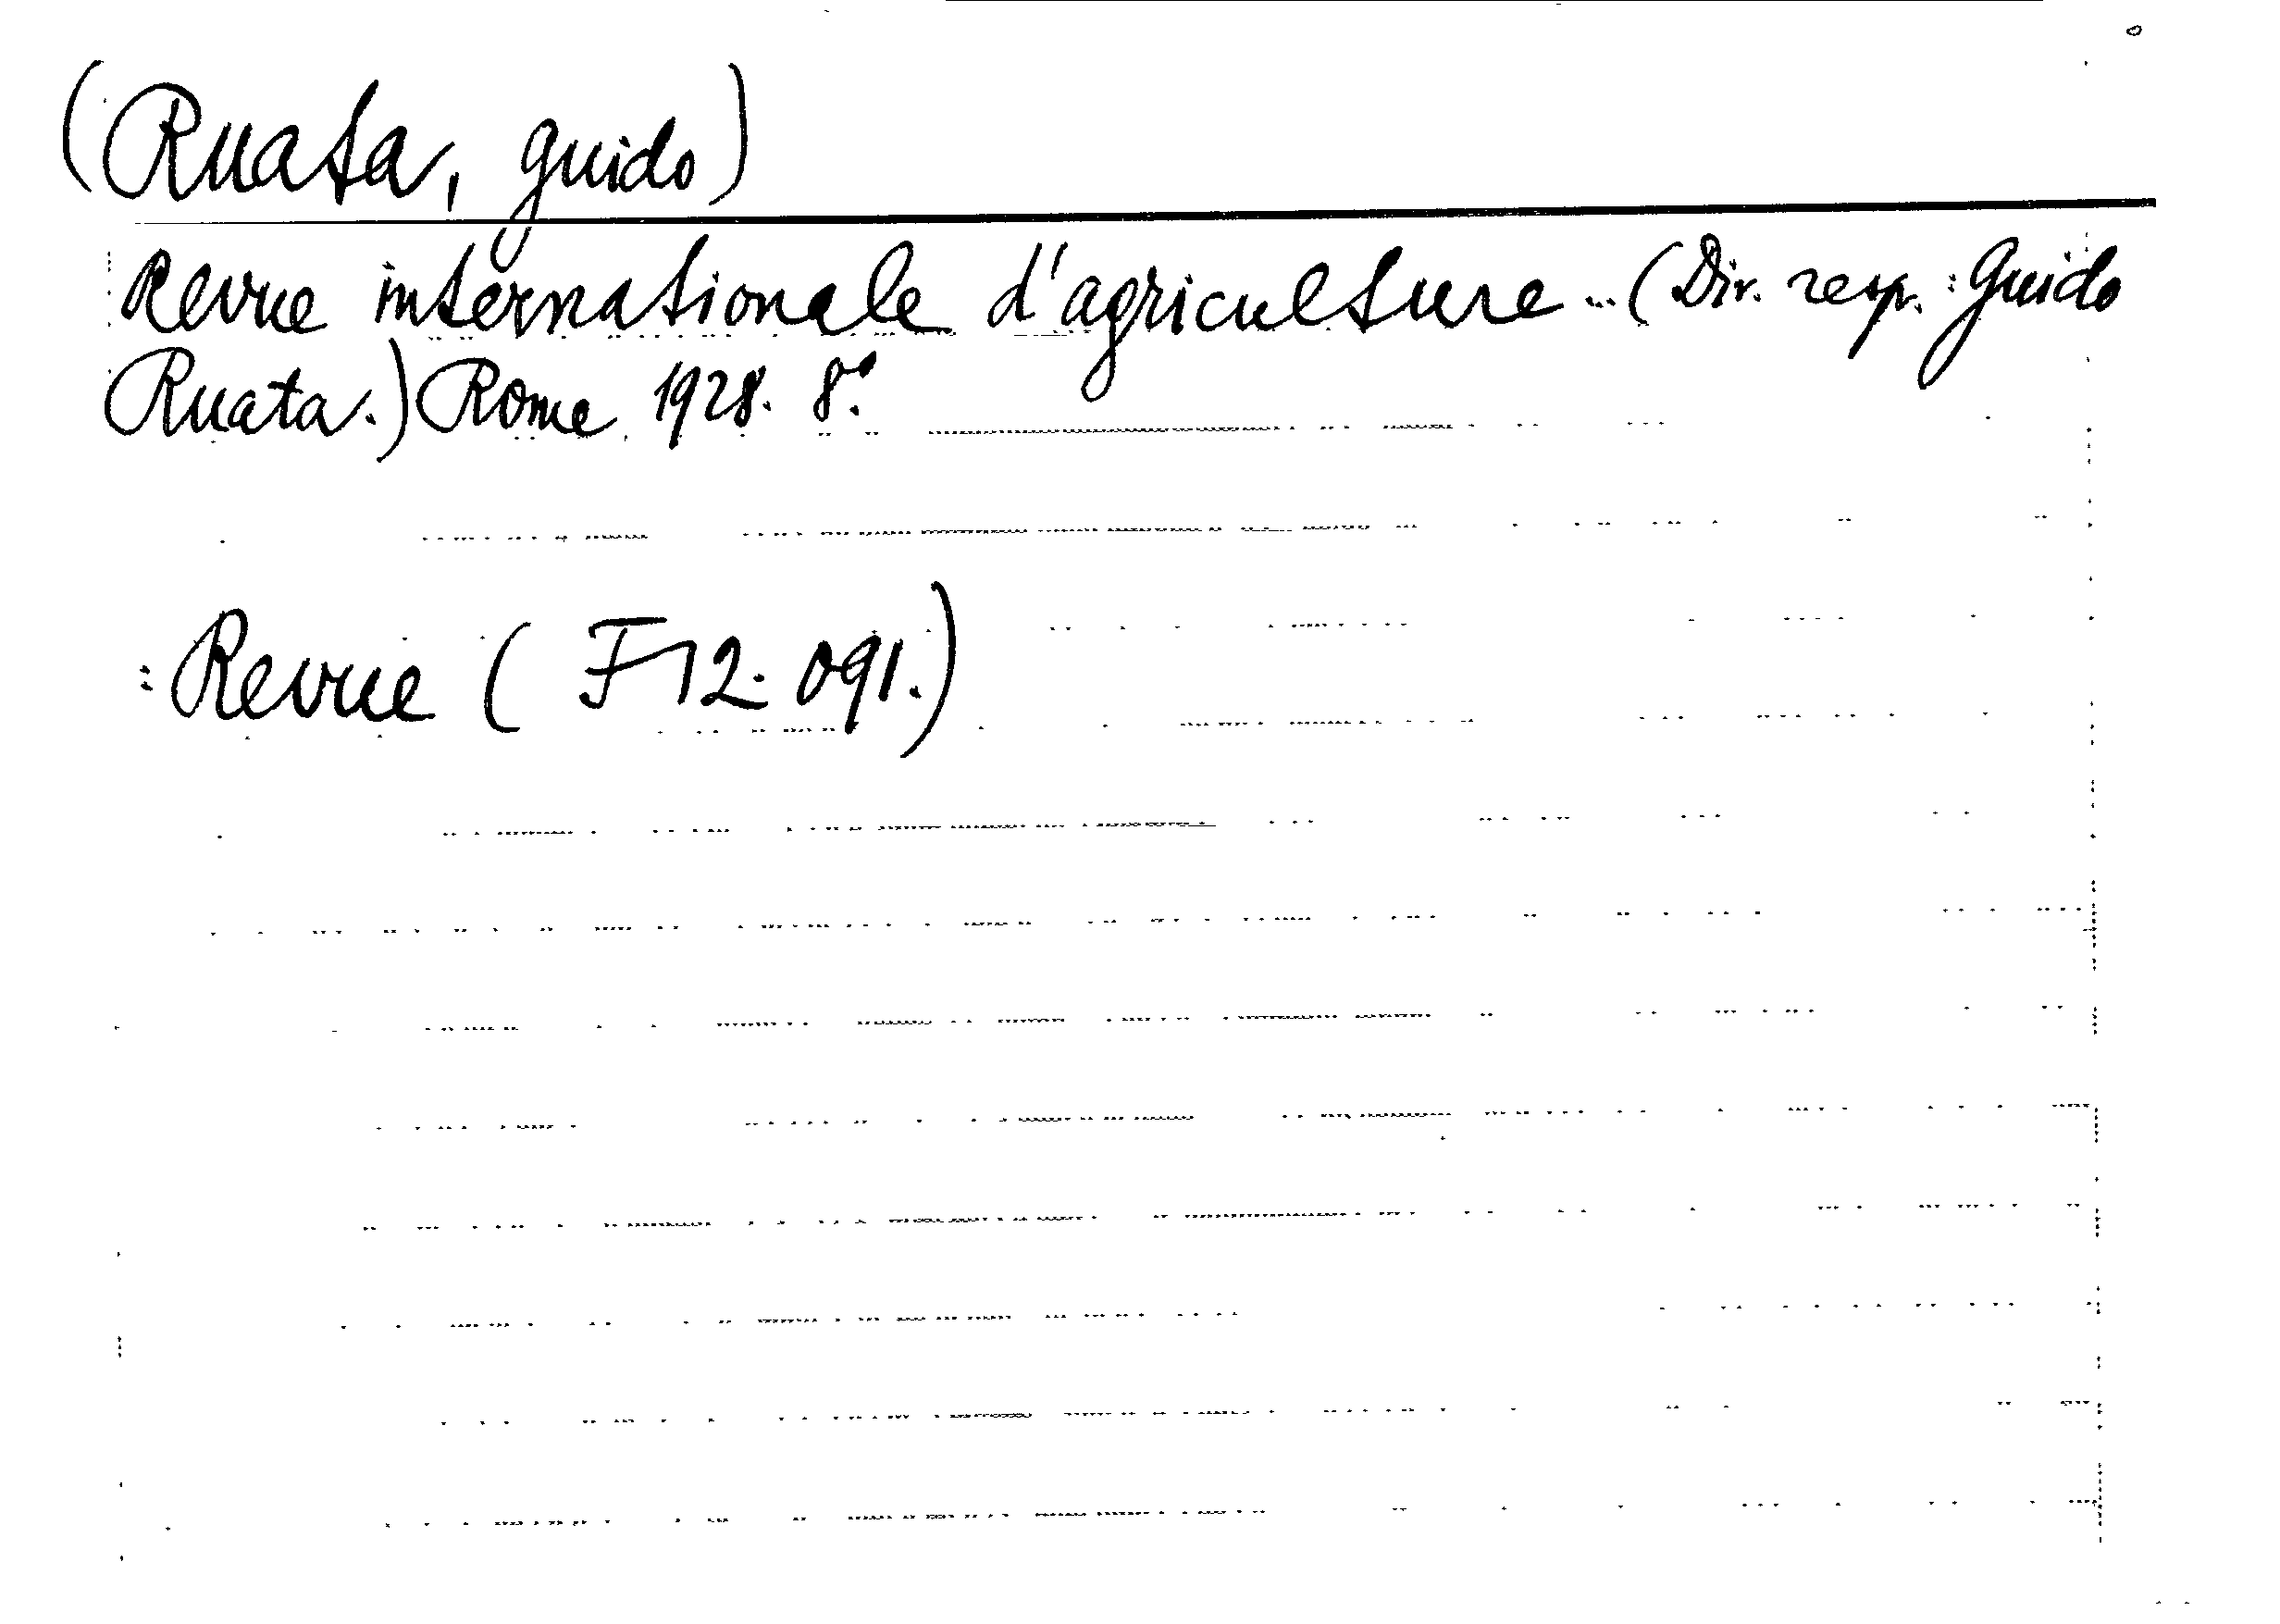 (Ruata, Guido)
Revue internationale d'agriculture... (Dir. resp.: Guido
Ruata.) Rome 1928. 8°.
: Revue (F12. 091.)